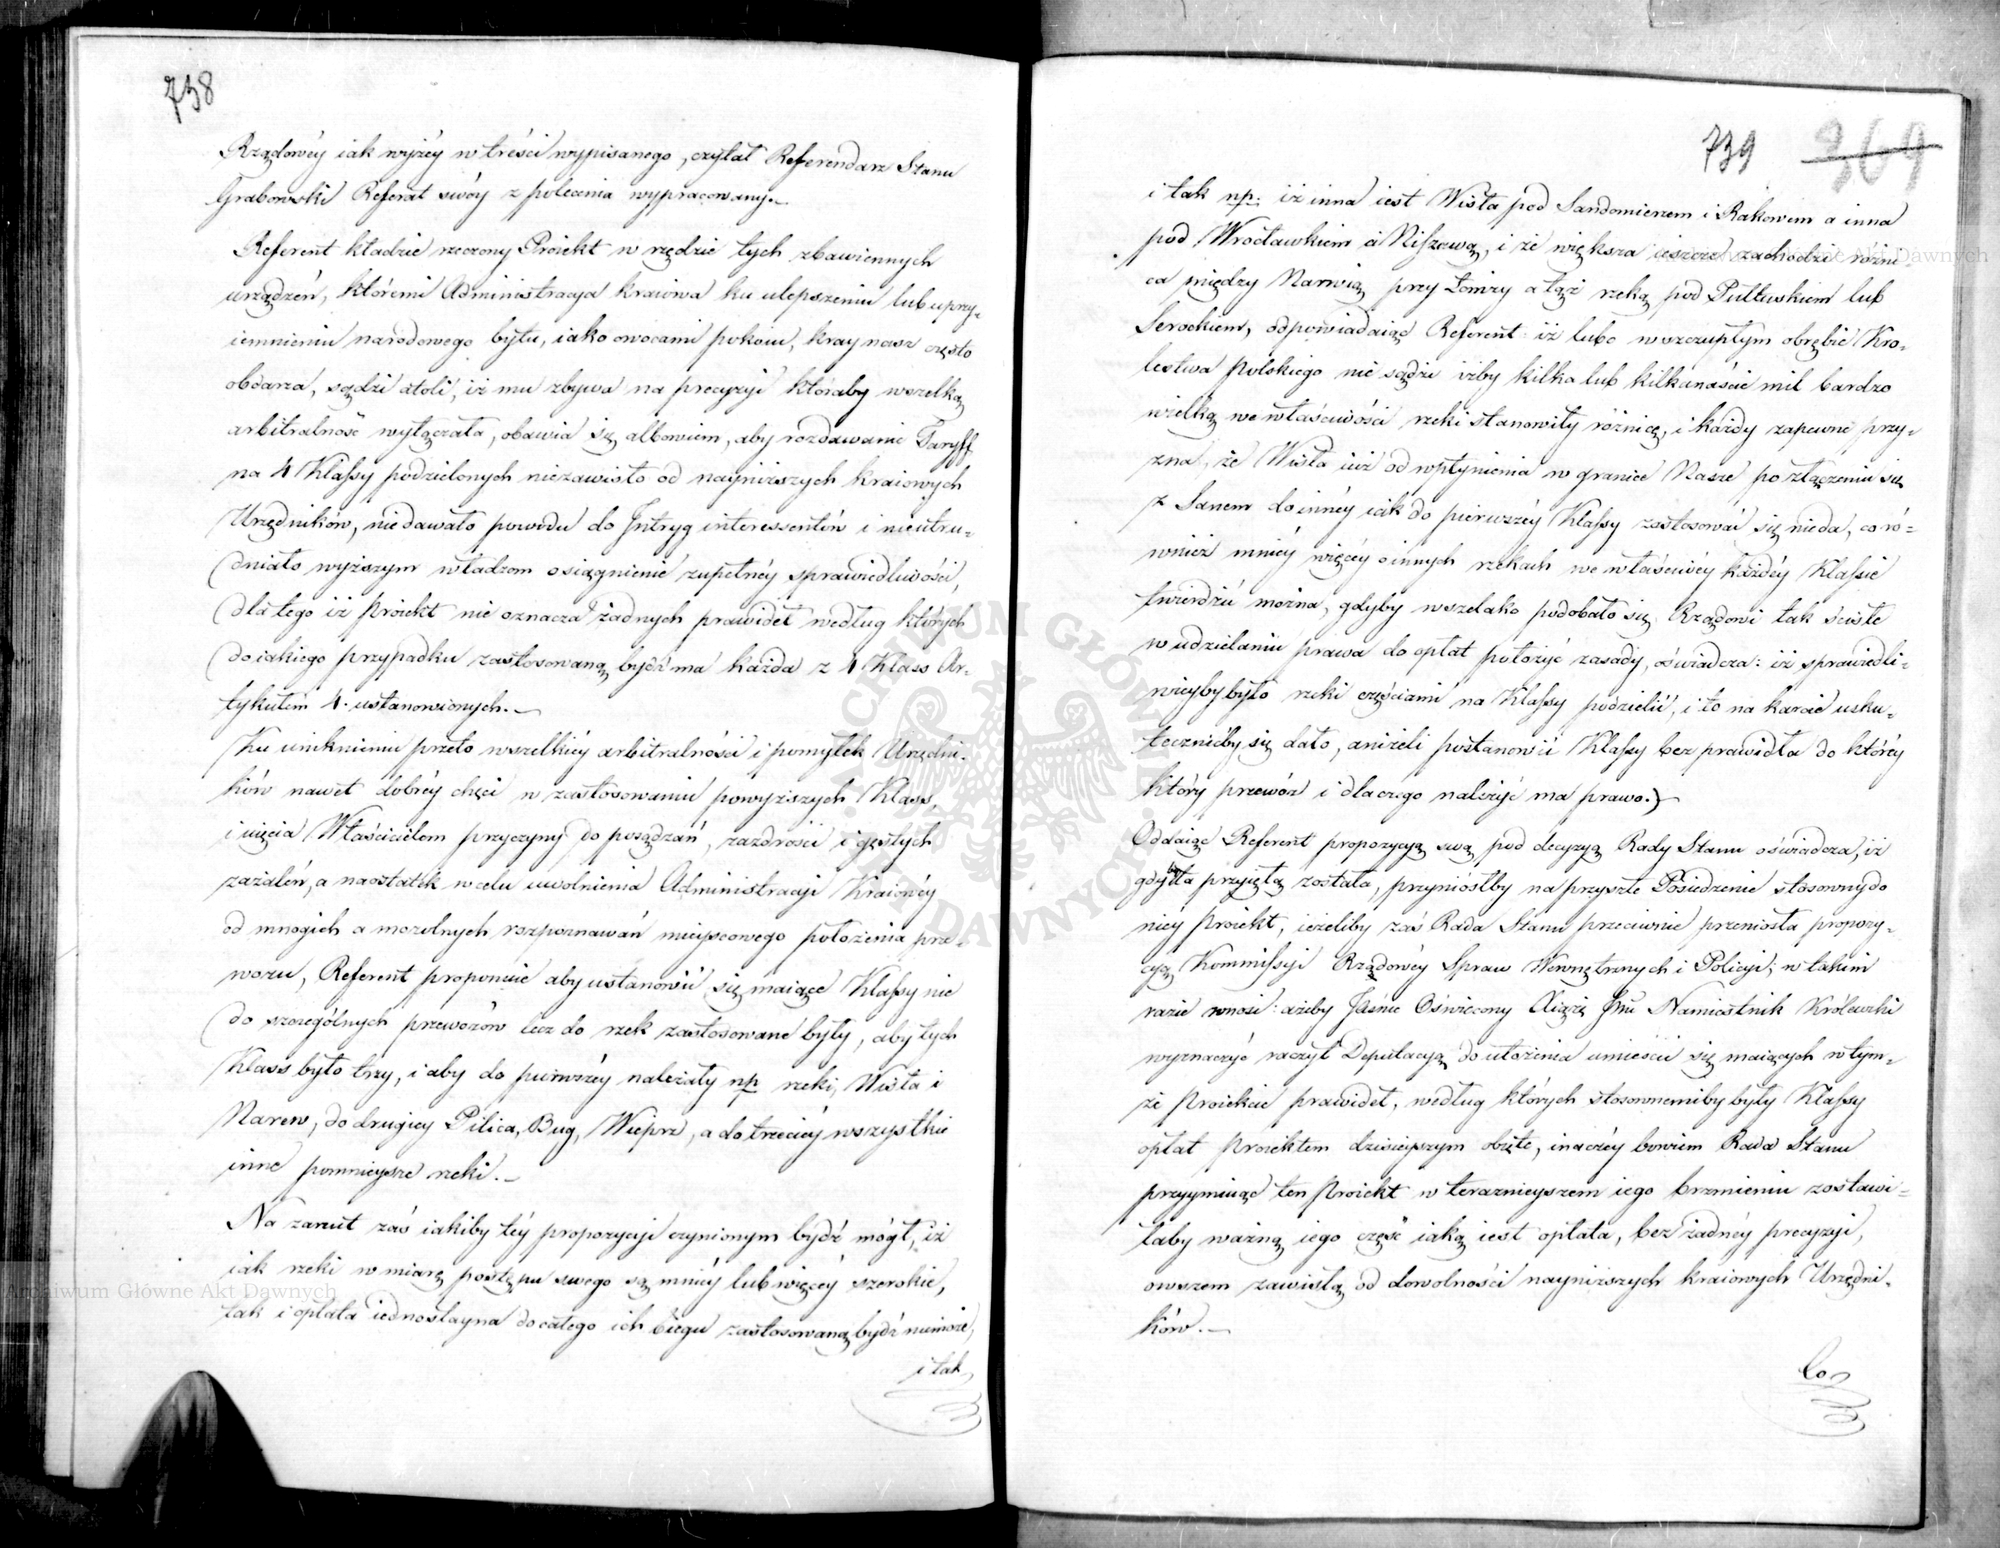 738
Rządowéy iak wyżéy w treści wypisanego, czytał Referendarz Stanu
Grabowski Referat swóy z polecenia wypracowany.—
Referent kładzie rzeczony Proiekt w rzędzie tych zbawiennych
urządzeń, któremi Administracya kraiowa ku ulepszeniu lub uprzy-
iemnieniu narodowego bytu, iako owocami pokoiu, kray nasz często
obdarza, sądzi atoli, iż mu zbywa na precyzyi któraby wszelką
arbitralność wyłączała, obawia się albowiem, aby rozdawanie Taryff
na 4 Klassy podzielonych niezawisło od nayniższych kraiowych
Urzędników, niedawało powodu do Intryg interessentów i nieutru-
dniało wyższym władzom osiągnienie zupełnéy sprawiedliwości,
dla tego iż Proiekt nie oznacza żadnych prawideł według których
do iakiego przypadku zastosowaną bydź ma każda z 4 Klass Ar-
tykułem 4. ustanowionych.—
Ku uniknieniu przeto wszelkiéy arbitralności i pomyłek Urzędni-
ków nawet dobréy chęci w zastosowaniu powyższych Klass,
i uięcia Właścicielom przyczyny do posądzań, zazdrości i gęstych
zażaleń, a naostatek w celu uwolnienia Administracyi Kraiowéy
od mnogich a mozolnych rozpoznawań mieyscowego położenia prze-
wozu, Referent proponuie aby ustanowić się maiące Klassy nie
do szczególnych przewozów lecz do rzek zastosowane były, aby tych
Klass było trzy, i aby do pierwszéy należały np rzeki, Wisła i
Narew, do drugiey Pilica, Bug, Wieprz, a do trzeciéy wszystkie
inne pomnieysze rzeki.—
Na zarzut zaś iakiby téy propozycyi czynionym bydź mógł, iż
iak rzeki w miarę postępu swego są mniéy lub więcéy szerokie,
tak i opłata iednostayna do całego ich biegu zastosowaną bydź niemoże,
i tak
739 369
i tak np: iż inna iest Wisła pod Sandomierzem i Rakowem a inna
pod Wrocławkiem a Niszawą, i że większa ieszcze zachodzi różni-
ca między Narwią przy Łomży a tąż rzeką pod Pułtuskiem lub
Serockiem, odpowiadaiąc Referent iż lubo w szczupłym obrębie Kró-
lestwa Polskiego nie sądzi iżby kilka lub kilkanaście mil bardzo
wielką we właściwości rzeki stanowiły różnicę, i każdy zapewne przy-
zna, że Wisła iuż od wpłynienia w granice Nasze po złączeniu się
z Sanem do innéy iak do pierwszéy Klassy zastosować się nieda, co ró-
wnież mniéy więcéy o innych rzekach we właściwéy każdéy Klassie
twierdzić można, gdyby wszelako podobało się Rządowi tak ścisłe
w udzielaniu prawa do opłat położyć zasady, oświadcza: iż sprawiedli-
wieyby było rzeki częściami na Klassy podzielić, i to na karcie usku-
tecznićby się dało, aniżeli postanowić Klassy bez prawidła do któréy
który przewóz i dlaczego należyć ma prawo.)—
Oddaiąc Referent propozycyą swą pod decyzyą Rady Stanu oświadcza, iż
gdyby ta przyiętą została, przyniósłby na przyszłe Posiedzenie stosowny do
niéy Proiekt, ieżeliby zaś Rada Stanu przeciwnie przeniosła propozy-
cyą Kommissyi Rządowéy Spraw Wewnętrznych i Policyi; w takim
razie wnosi: ażeby Jaśnie Oświecony Xiążę Jmć Namiestnik Królewski
wyznaczyć raczył Deputacyą do ułożenia umieścić się maiących w tym-
że Proiekcie prawideł, według których stosownemiby były Klassy
opłat Proiektem dzisieyszym obięte, inaczéy bowiem Rada Stanu
przyymuiąc ten Proiekt w teraznieyszem iego brzmieniu zostawi-
łaby ważną iego część iaką iest opłata, bez żadnéy precyzyi,
owszem zawisłą od dowolności nayniższych kraiowych Urzędni-
ków.—
Co
Archiwum Główne Akt Dawnych